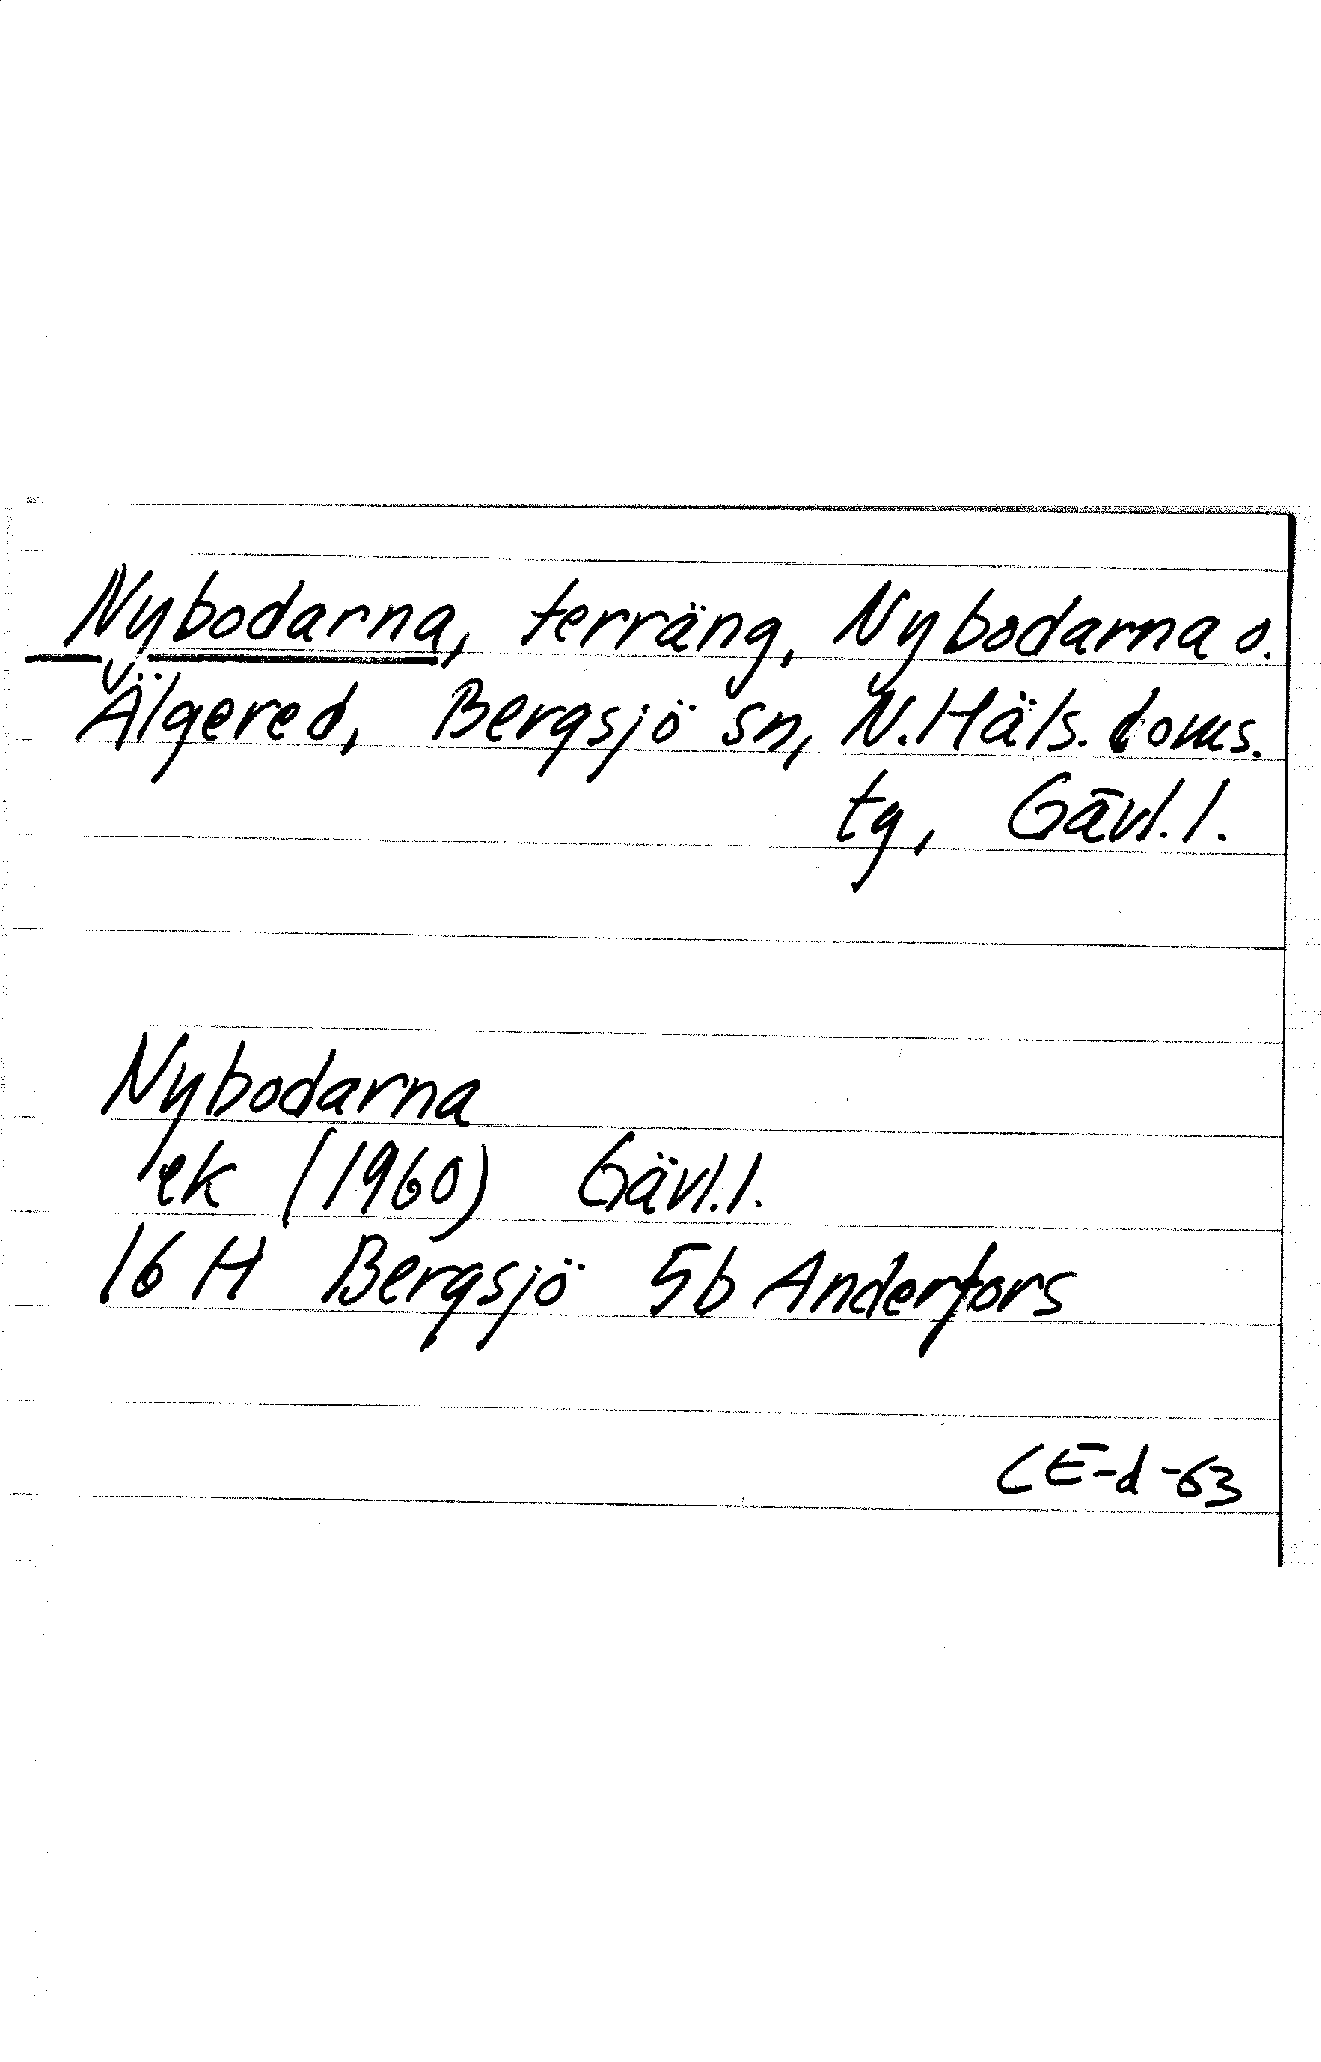 Nybodarna, terräng, Nybodarna o.
Älgered, Bergsjö sn, N.Häls. doms.
tg, Gävl.l.
Nybodarna
ek (1960) Gävl.l.
16 H Bergsjö 5b Anderfors
CE-d-63